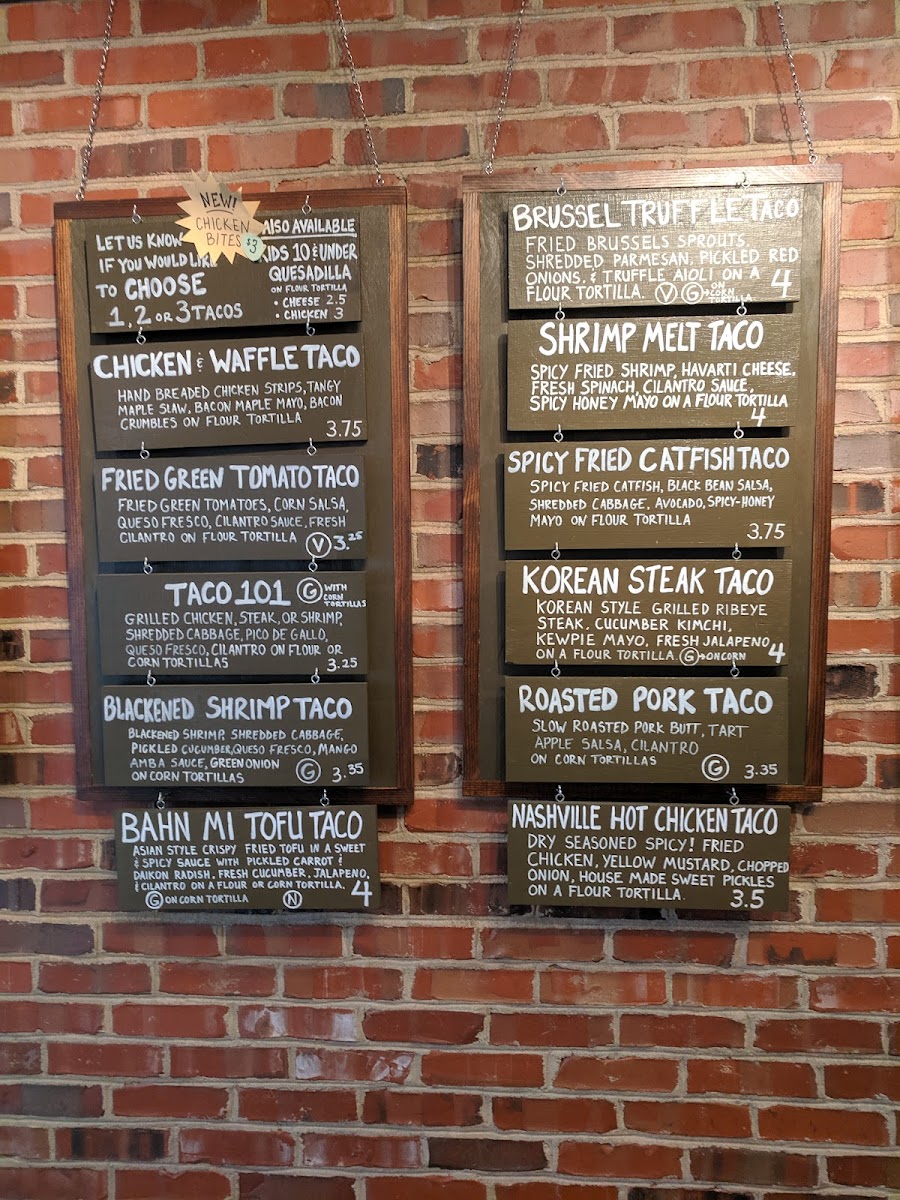 NEW!
CHICKEN
BITES $3
LET US KNOW
IF YOU WOULD LIKE
TO CHOOSE
1, 2 OR 3 TACOS
ALSO AVAILABLE
KIDS 10 & UNDER
QUESADILLA
ON FLOUR TORTILLA
• CHEESE 2.5
• CHICKEN 3
CHICKEN & WAFFLE TACO
HAND BREADED CHICKEN STRIPS, TANGY
MAPLE SLAW, BACON MAPLE MAYO, BACON
CRUMBLES ON FLOUR TORTILLA
3.75
FRIED GREEN TOMATO TACO
FRIED GREEN TOMATOES, CORN SALSA,
QUESO FRESCO, CILANTRO SAUCE, FRESH
CILANTRO ON FLOUR TORTILLA V 3.25
TACO 101 G WITH CORN TORTILLAS
GRILLED CHICKEN, STEAK, OR SHRIMP,
SHREDDED CABBAGE, PICO DE GALLO,
QUESO FRESCO, CILANTRO ON FLOUR OR
CORN TORTILLAS 3.25
BLACKENED SHRIMP TACO
BLACKENED SHRIMP, SHREDDED CABBAGE,
PICKLED CUCUMBER, QUESO FRESCO, MANGO
AMBA SAUCE, GREEN ONION
ON CORN TORTILLAS G 3.35
BAHN MI TOFU TACO
ASIAN STYLE CRISPY FRIED TOFU IN A SWEET
& SPICY SAUCE WITH PICKLED CARROT &
DAIKON RADISH, FRESH CUCUMBER, JALAPENO,
& CILANTRO ON A FLOUR OR CORN TORTILLA. 4
G ON CORN TORTILLA N
BRUSSEL TRUFFLE TACO
FRIED BRUSSELS SPROUTS,
SHREDDED PARMESAN, PICKLED RED
ONIONS, & TRUFFLE AIOLI ON A 4
FLOUR TORTILLA. V G→ON CORN TORTILLA
SHRIMP MELT TACO
SPICY FRIED SHRIMP, HAVARTI CHEESE,
FRESH SPINACH, CILANTRO SAUCE,
SPICY HONEY MAYO ON A FLOUR TORTILLA
4
SPICY FRIED CATFISH TACO
SPICY FRIED CATFISH, BLACK BEAN SALSA,
SHREDDED CABBAGE, AVOCADO, SPICY-HONEY
MAYO ON FLOUR TORTILLA
3.75
KOREAN STEAK TACO
KOREAN STYLE GRILLED RIBEYE
STEAK, CUCUMBER KIMCHI,
KEWPIE MAYO, FRESH JALAPENO
ON A FLOUR TORTILLA. G→ON CORN 4
ROASTED PORK TACO
SLOW ROASTED PORK BUTT, TART
APPLE SALSA, CILANTRO
ON CORN TORTILLAS G 3.35
NASHVILLE HOT CHICKEN TACO
DRY SEASONED SPICY! FRIED
CHICKEN, YELLOW MUSTARD, CHOPPED
ONION, HOUSE MADE SWEET PICKLES
ON A FLOUR TORTILLA. 3.5